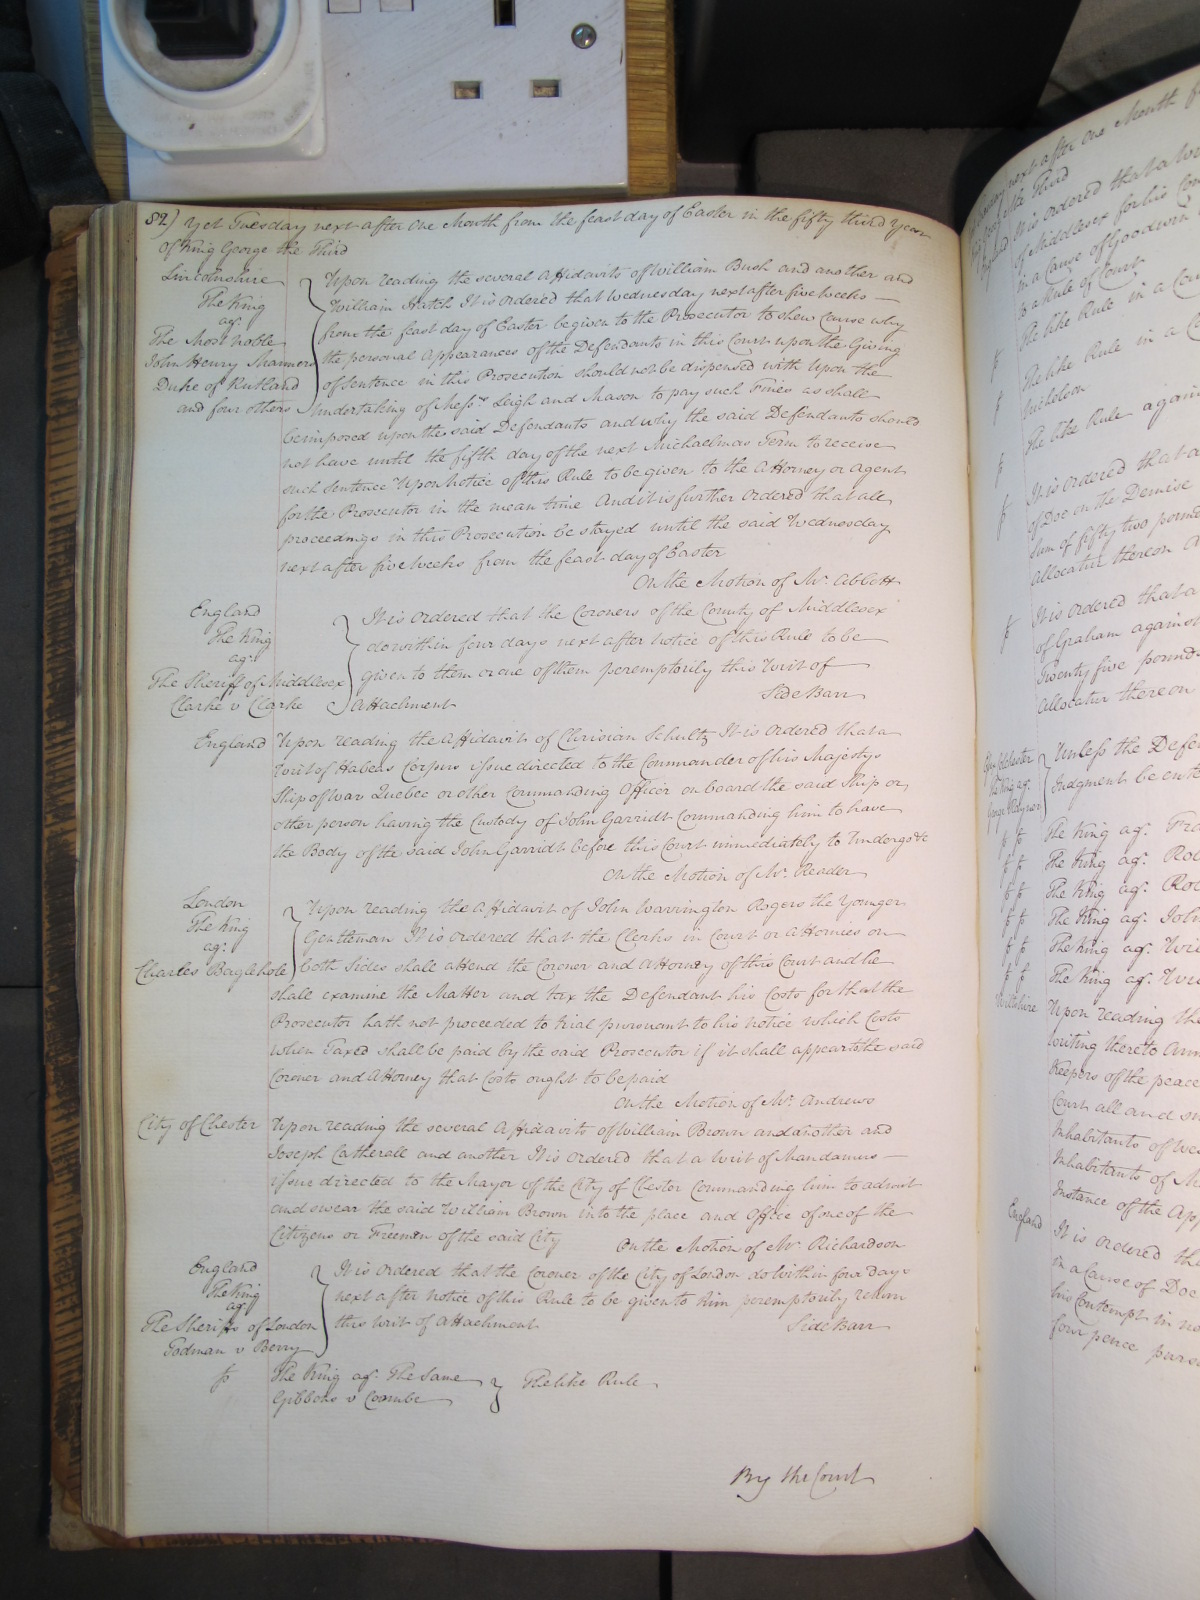 82) Yet Tuesday next after one Month from the feast day of Easter in the fifty third Year
of King George the Third
Lincolnshire
The King
agt
The Most Noble
John Henry Manners
Duke of Rutland
and four others
Upon reading the several Affidavits of William Bush and another and
William Hatch It is ordered that Wednesday next after five weeks
from the feast day of Easter be given to the Prosecutor to shew Cause why
the personal Appearances of the Defendants in this Court upon the Giving
of Sentence in this Prosecution should not be dispensed with Upon the
Undertaking of Messrs Leigh and Mason to pay such Fines as shall
be imposed upon the said Defendants and why the said Defendants should
not have until the fifth day of the next Michaelmas Term to receive
such Sentence Upon Notice of this Rule to be given to the Attorney or Agent
for the Prosecutor in the mean time And it is further Ordered that all
proceedings in this Prosecution be stayed until the said Wednesday
next after five weeks from the feast day of Easter
On the Motion of Mr. Abbott
England
The King
agt
The Sheriff of Middlesex
Clarke v Clarke
It is Ordered that the Coroners of the County of Middlesex
do within four days next after notice of this Rule to be
given to them or one of them peremptorily this Writ of
Attachment
Side Barr
England
Upon reading the Affidavit of Chrisian Schultz It is Ordered that a
Writ of Habeas Corpus issue directed to the Commander of his Majestys
Ship of War Quebec or other Commanding Officer on board the said Ship or
other person having the Custody of John Garridt Commanding him to have
the Body of the said John Garridt before this Court immediately to Undergo &c
On the Motion of Mr. Reader
London
The King
agt
Charles Baglehole
Upon reading the Affidavit of John Warrington Rogers the Younger
Gentleman It is ordered that the Clerks in Court or Attornies on
both Sides shall attend the Coroner and Attorney of this Court and he
shall examine the Matter and tax the Defendant his Costs for that the
Prosecutor hath not proceeded to trial pursuant to his notice which Costs
when Taxed shall be paid by the said Prosecutor if it shall appear to the said
Coroner and Attorney that Costs ought to be paid
On the Motion of Mr. Andrews
City of Chester
Upon reading the several Affidavits of William Brown and another and
Joseph Catherall and another It is ordered that a Writ of Mandamus
issue directed to the Mayor of the City of Chester Commanding him to admit
and swear the said William Brown into the place and Office of one of the
Citizens or Freemen of the said City
On the Motion of Mr. Richardson
England
The King
agt
The Sheriffs of London
Todman v Berry
It is Ordered that the Coroner of the City of London do within four days
next after notice of this Rule to be given to him peremptorily return
this Writ of Attachment
Side Barr
The King agt. The Same
Gibbons v Coombe
The like Rule
By the Court
next after one Month
It is Ordered that a
of Middlesex for his Con
in a Cause of Goodwin
to a Rule of Court
The like Rule in a Co
The like Rule in a C
Nicholson
The like Rule again
It is Ordered that a
of Doe on the Demise
Sum of fifty two pound
Allocatur thereon
It is Ordered that a
of Graham against
Twenty five pounds
Allocatur thereon
Unless the Defe
Judgment be ente
The King agt. Fra
The King agt. Rob
The King agt. Rob
The King agt. John
The King agt. Wil
The King agt. Wil
Wiltshire
Upon reading th
writing thereto ann
Keepers of the peace
Court all and s
Inhabitants of We
Inhabitants of M
Instance of the App
England
It is Ordered tha
in a Cause of Doe
his Contempt in no
four pence pursu